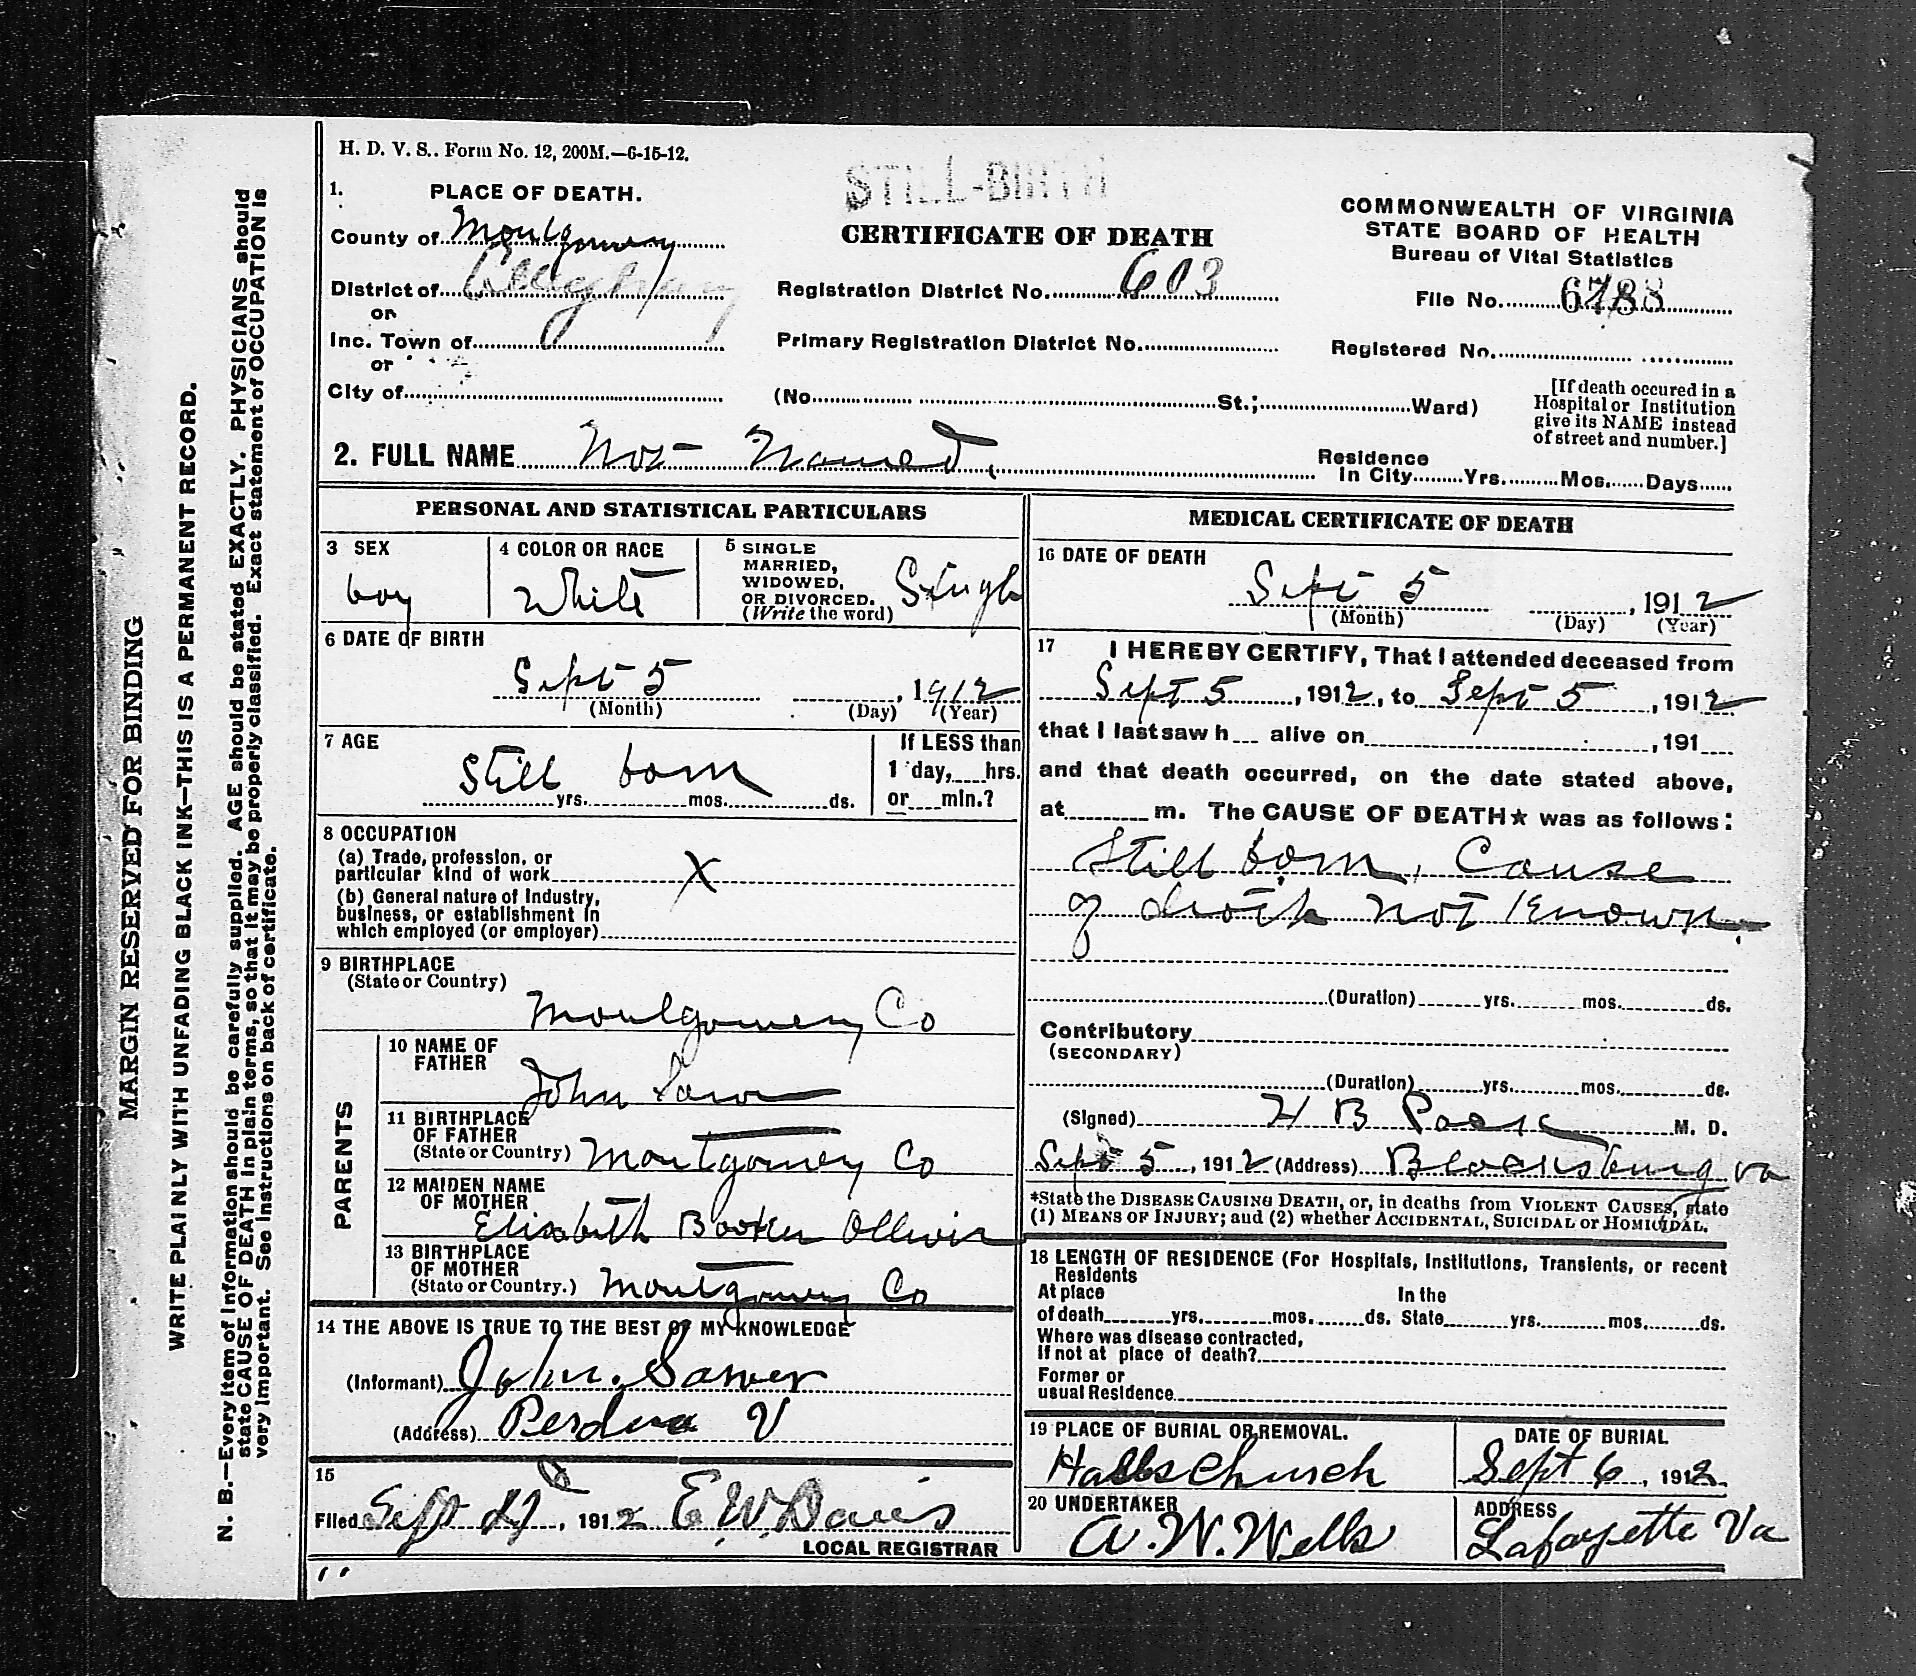 H. D. V. S.. Form No. 12, 200M.—6-15-12.
STILL-BIRTH
1. PLACE OF DEATH.
CERTIFICATE OF DEATH
COMMONWEALTH OF VIRGINIA
STATE BOARD OF HEALTH
Bureau of Vital Statistics
County of Montgomery
District of
Registration District No. 603
File No. 6788
or
Inc. Town of
Primary Registration District No.
Registered No.
or
City of
(No. St.; Ward)
[If death occured in a
Hospital or Institution
give its NAME instead
of street and number.]
2. FULL NAME Not Named.
Residence
In City Yrs. Mos. Days
PERSONAL AND STATISTICAL PARTICULARS
3 SEX
boy
4 COLOR OR RACE
White
5 SINGLE
MARRIED,
WIDOWED,
OR DIVORCED.
(Write the word)
Single
6 DATE OF BIRTH
Sept 5, 1912
(Month) (Day) (Year)
7 AGE
Still born
yrs. mos. ds.
If LESS than
1 day, hrs.
or min.?
8 OCCUPATION
(a) Trade, profession, or
particular kind of work X
(b) General nature of Industry,
business, or establishment in
which employed (or employer)
9 BIRTHPLACE
(State or Country)
Montgomery Co
PARENTS
10 NAME OF
FATHER
John
11 BIRTHPLACE
OF FATHER
(State or Country) Montgomery Co
12 MAIDEN NAME
OF MOTHER
Elisabeth Booker Olliver
13 BIRTHPLACE
OF MOTHER
(State or Country.) Montgomery Co
14 THE ABOVE IS TRUE TO THE BEST OF MY KNOWLEDGE
(Informant) John. Sarver
(Address) V
15
Filed Sept, 1912 E. W. Davis
LOCAL REGISTRAR
MEDICAL CERTIFICATE OF DEATH
16 DATE OF DEATH
Sept 5, 1912
(Month) (Day) (Year)
17 I HEREBY CERTIFY, That I attended deceased from
Sept 5, 1912, to Sept 5, 1912
that I last saw h alive on , 191
and that death occurred, on the date stated above,
at m. The CAUSE OF DEATH★ was as follows:
Still born, Cause
of death not Known.
(Duration) yrs. mos. ds.
Contributory
(SECONDARY)
(Duration) yrs. mos. ds.
(Signed) H B M. D.
Sept 5, 1912 (Address) Blacksburg Va
*State the DISEASE CAUSING DEATH, or, in deaths from VIOLENT CAUSES, state
(1) MEANS OF INJURY; and (2) whether ACCIDENTAL, SUICIDAL or HOMICIDAL.
18 LENGTH OF RESIDENCE (For Hospitals, Institutions, Transients, or recent
Residents
At place In the
of death yrs. mos. ds. State yrs. mos. ds.
Where was disease contracted,
If not at place of death?
Former or
usual Residence
19 PLACE OF BURIAL OR REMOVAL.
Halls Church
DATE OF BURIAL
Sept 6, 1912.
20 UNDERTAKER
A. W. Wells
ADDRESS
Lafayette Va
MARGIN RESERVED FOR BINDING
WRITE PLAINLY WITH UNFADING BLACK INK—THIS IS A PERMANENT RECORD.
N. B.—Every item of information should be carefully supplied. AGE should be stated EXACTLY. PHYSICIANS should
state CAUSE OF DEATH in plain terms, so that it may be properly classified. Exact statement of OCCUPATION is
very important. See instructions on back of certificate.